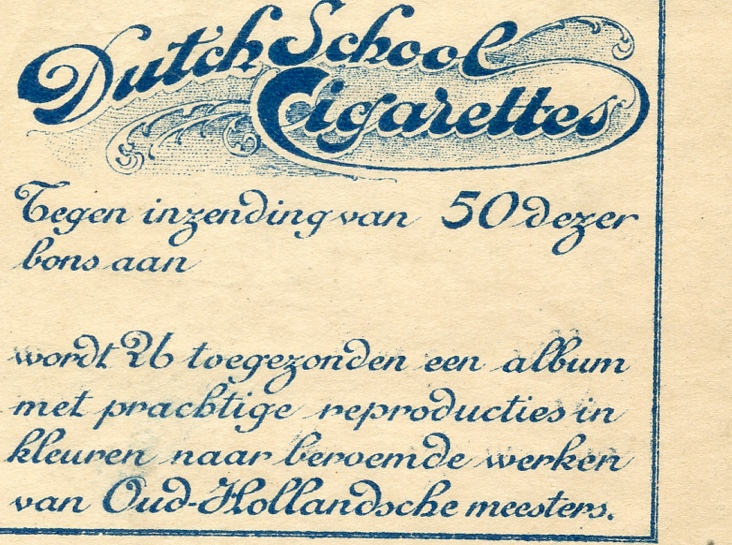 Dutch School
Cigarettes
Tegen inzending van 50 dezer
bons aan
wordt U toegezonden een album
met prachtige reproducties in
kleuren naar beroemde werken
van Oud-Hollandsche meesters.